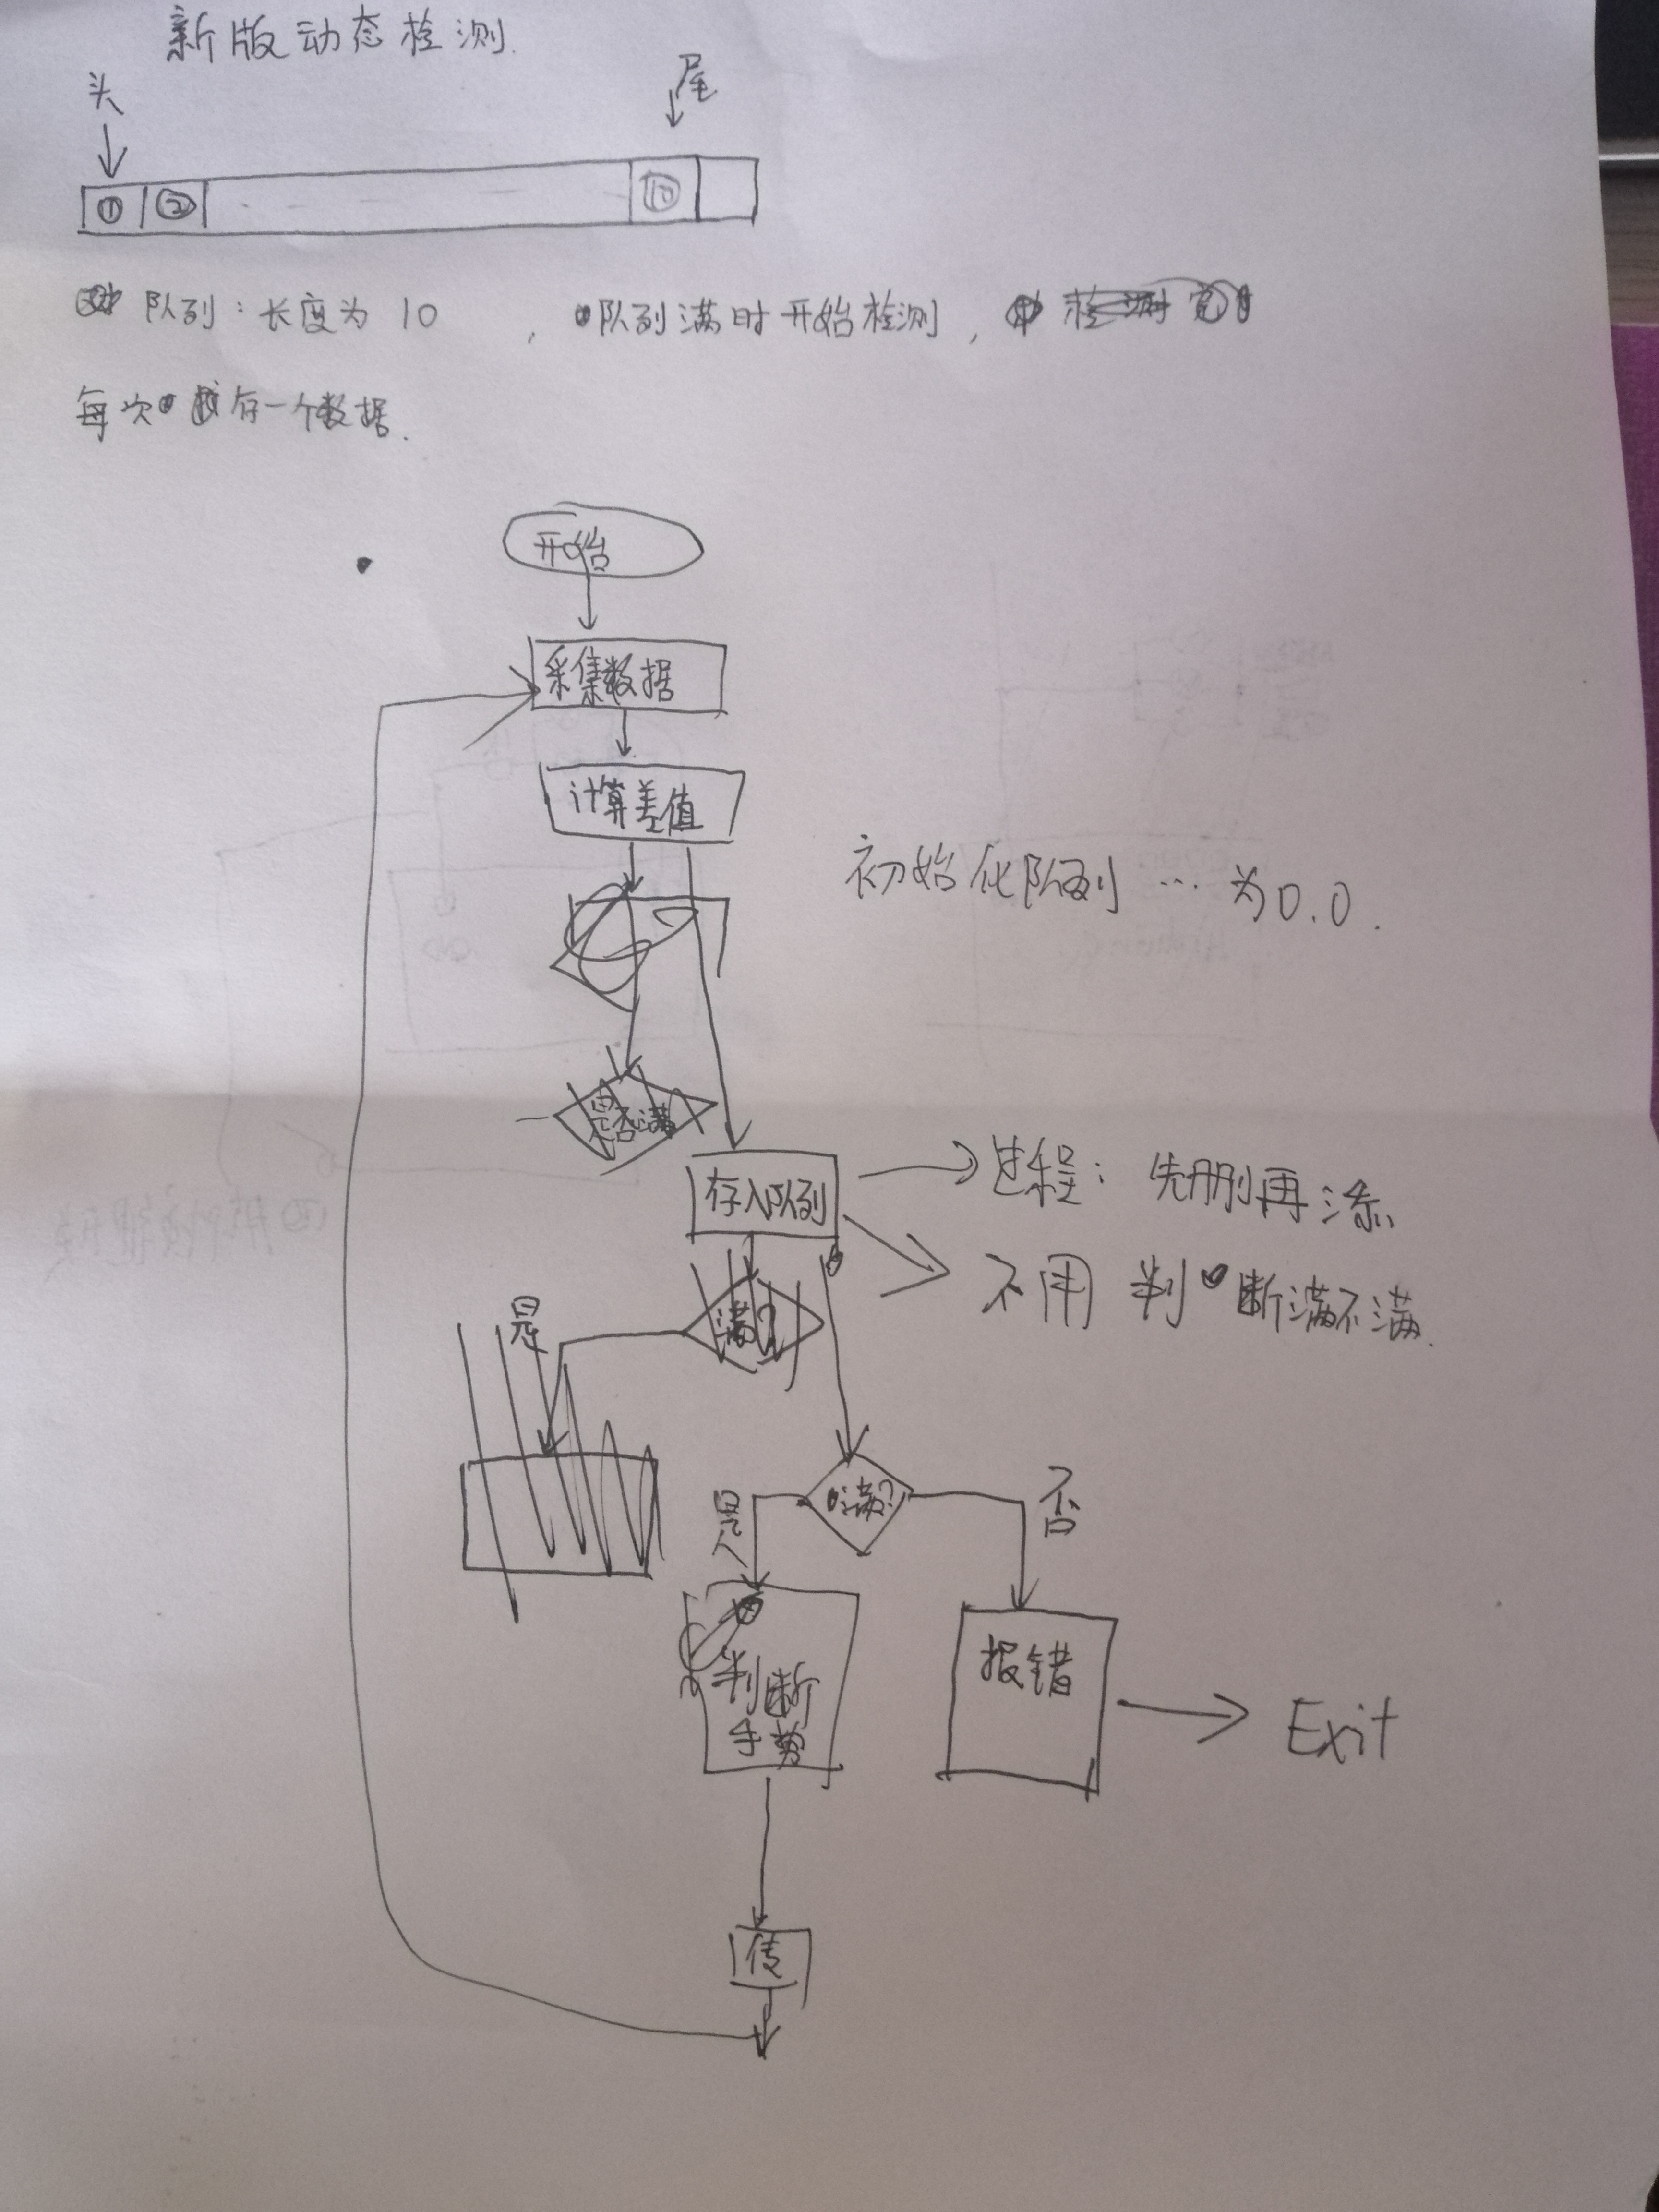 新版动态检测.
头
尾
① ② ⑩
队列：长度为 10 ， 队列满时开始检测，
每次 存一个数据.
开始
采集数据
计算差值
初始化队列 … 为0.0.
是否满
存入队列
过程：先删再添
不用判断满不满.
满？
是
满？
是
否
判断
手势
报错
Exit
传